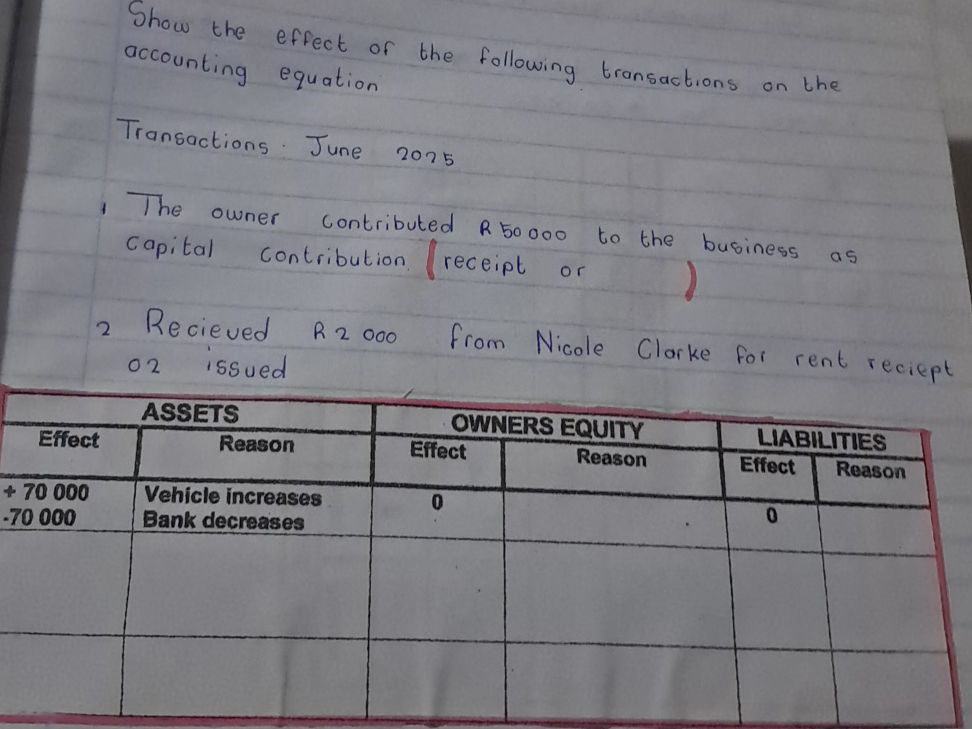 Show the effect of the following transactions on the
accounting equation
Transactions. June 2025
1 The owner contributed R50 000 to the business as
capital contribution (receipt or )
2 Recieved R2 000 from Nicole Clarke for rent reciept
02 issued
ASSETS OWNERS EQUITY LIABILITIES
Effect Reason Effect Reason Effect Reason
+ 70 000 Vehicle increases 0 0
-70 000 Bank decreases